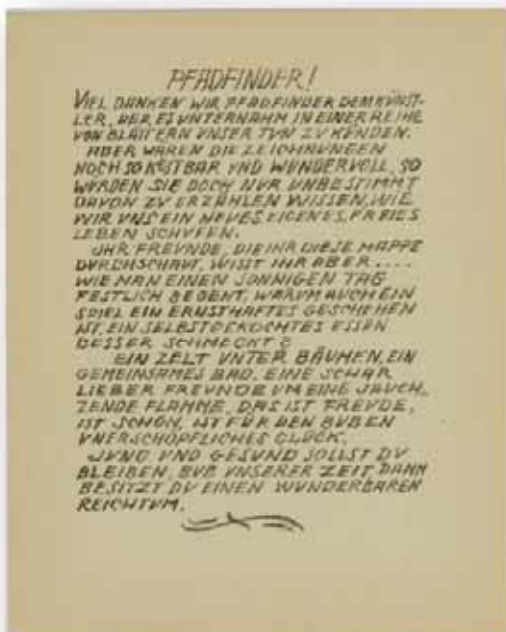 PFADFINDER!
VIEL DANKEN WIR PFADFINDER DEM KÜNST-
LER, DER ES VNTERNAHM IN EINER REIHE
VON BLÄTTERN VNSER TVN ZV KÜNDEN.
ABER WÄREN DIE ZEICHNVNGEN
NOCH SO KOSTBAR VND WVNDERVOLL, SO
WVRDEN SIE DOCH NVR VNBESTIMMT
DAVON ZV ERZÄHLEN WISSEN, WIE
WIR VNS EIN NEVES EIGENES, FREIES
LEBEN SCHVFEN.
IHR FREVNDE, DIE IHR DIESE MAPPE
DVRCHSCHAVT, WISST IHR ABER....
WIE MAN EINEN SONNIGEN TAG
FESTLICH BEGEHT, WARVM AVCH EIN
SPIEL EIN ERNSTHAFTES GESCHEHEN
IST, EIN SELBSTGEKOCHTES ESSEN
BESSER SCHMECKT?
EIN ZELT VNTER BÄVMEN, EIN
GEMEINSAMES BAD, EINE SCHAR
LIEBER FREVNDE VM EINE JAVCH-
ZENDE FLAMME, DAS IST FREVDE,
IST SCHÖN, IST FÜR DEN BVBEN
VNERSCHÖPFLICHES GLÜCK.
JVNG VND GESVND SOLLST DV
BLEIBEN, BVB VNSERER ZEIT DANN
BESITZT DV EINEN WVNDERBAREN
REICHTVM.